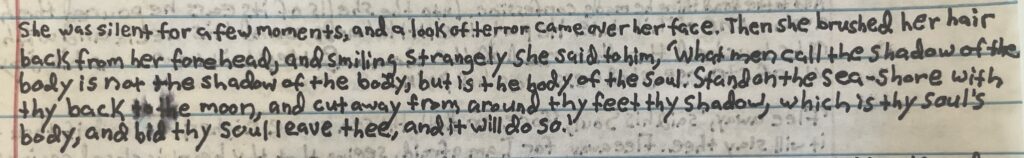 She was silent for a few moments, and a look of terror came over her face. Then she brushed her hair
back from her forehead, and smiling strangely she said to him, "What men call the shadow of the
body is not the shadow of the body, but is the body of the soul. Stand on the sea-shore with
thy back to the moon, and cut away from around thy feet thy shadow, which is thy soul's
body, and bid thy soul leave thee, and it will do so."